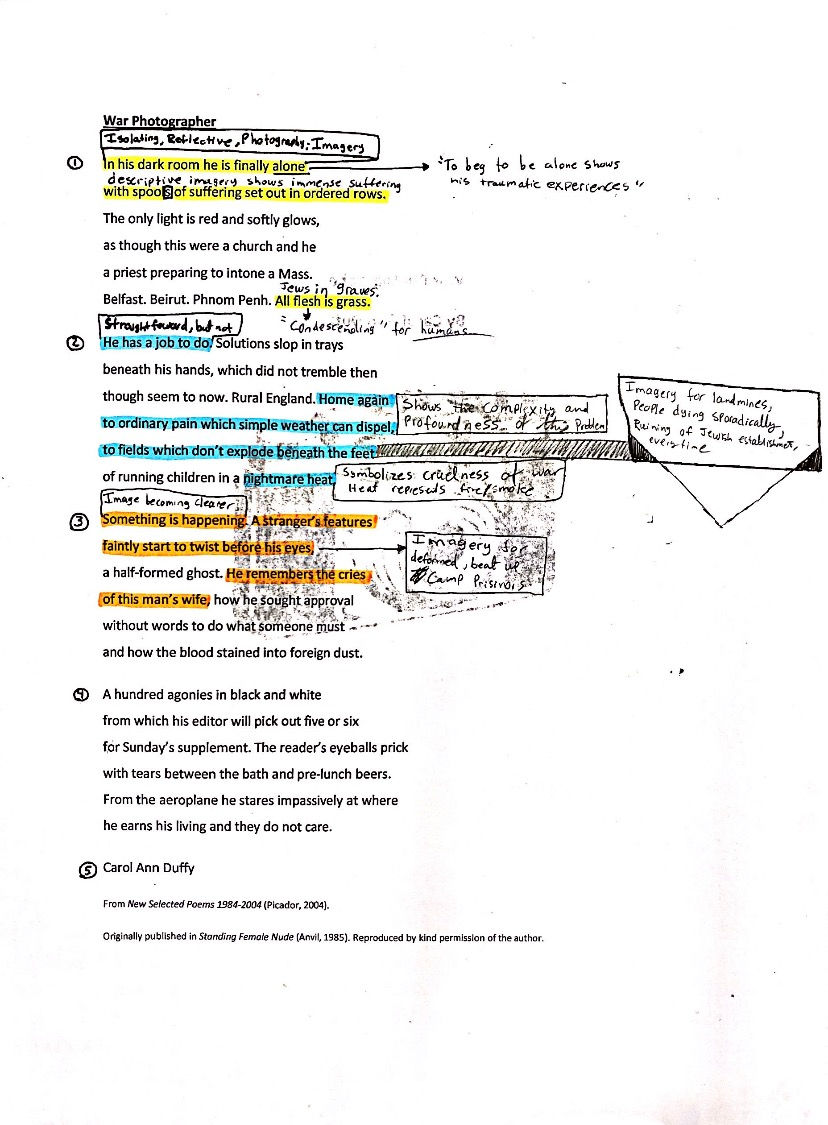 War Photographer
Isolating, Reflective, Photography, Imagery
① In his dark room he is finally alone
"To beg to be alone shows
his traumatic experiences"
descriptive imagery shows immense suffering
with spools of suffering set out in ordered rows.
The only light is red and softly glows,
as though this were a church and he
a priest preparing to intone a Mass.
Jews in "graves".
Belfast. Beirut. Phnom Penh. All flesh is grass.
"Condescending" for humans
Straightfoward, but not
② He has a job to do. Solutions slop in trays
beneath his hands, which did not tremble then
though seem to now. Rural England. Home again
to ordinary pain which simple weather can dispel,
Shows the complexity and
Profoundness of this Problem
to fields which don't explode beneath the feet
Imagery for landmines,
People dying sporadically,
Ruining of Jewish establishment,
everytime
of running children in a nightmare heat.
Symbolizes cruelness of war
Heat represents fire/smoke
Image becoming clearer
③ Something is happening. A stranger's features
faintly start to twist before his eyes,
Imagery for
deformed, beat up
Camp
a half-formed ghost. He remembers the cries
of this man's wife, how he sought approval
without words to do what someone must
and how the blood stained into foreign dust.
④ A hundred agonies in black and white
from which his editor will pick out five or six
for Sunday's supplement. The reader's eyeballs prick
with tears between the bath and pre-lunch beers.
From the aeroplane he stares impassively at where
he earns his living and they do not care.
⑤ Carol Ann Duffy
From New Selected Poems 1984-2004 (Picador, 2004).
Originally published in Standing Female Nude (Anvil, 1985). Reproduced by kind permission of the author.